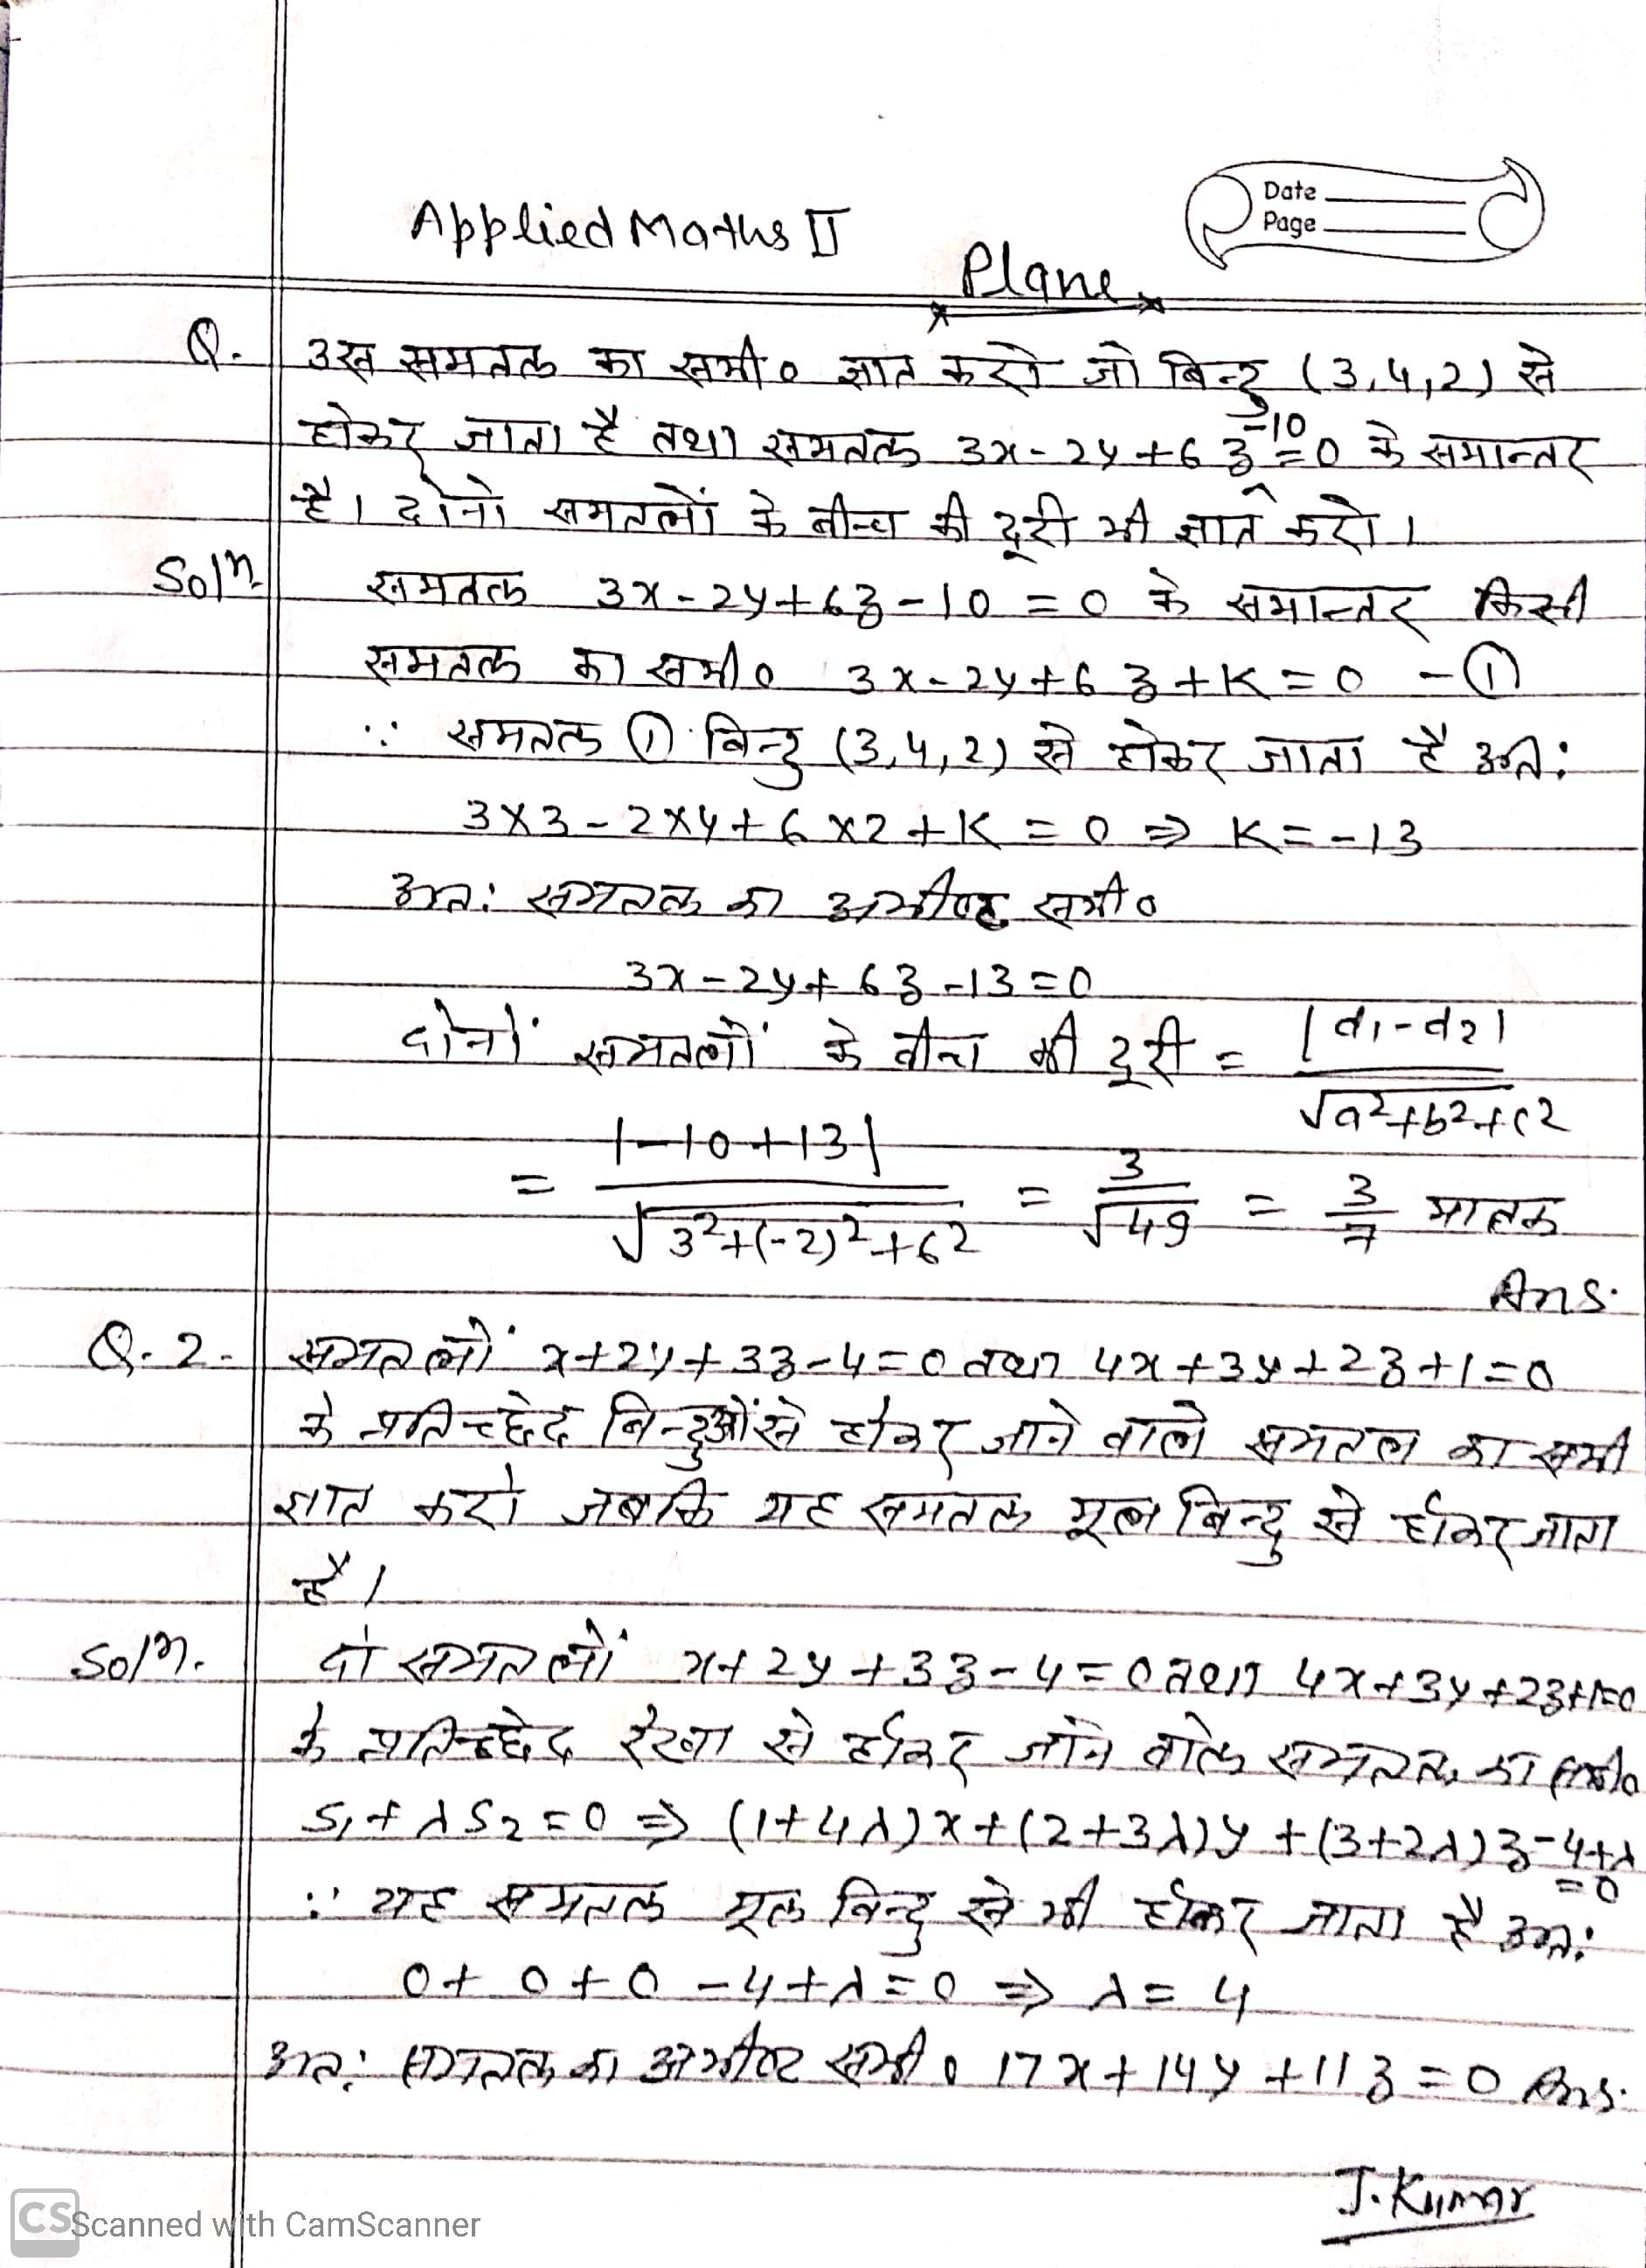 Date
Page
Applied Maths II
Plane
Q. उस समतल का समी० ज्ञात करो जो बिन्दु (3,4,2) से
होकर जाता है तथा समतल 3x-2y+6z-10=0 के समान्तर
है। दोनो समतलों के बीच की दूरी भी ज्ञात करो।
Solⁿ. समतल 3x-2y+6z-10=0 के समान्तर किसी
समतल का समी० 3x-2y+6z+K=0 -①
∵ समतल ① बिन्दु (3,4,2) से होकर जाता है अत:
3×3-2×4+6×2+K=0 ⇒ K=-13
अत: समतल का अभीष्ट समी०
3x-2y+6z-13=0
दोनों समतलों के बीच की दूरी = |d₁-d₂| / √a²+b²+c²
= |-10+13| / √3²+(-2)²+6² = 3/√49 = 3/7 मात्रक
Ans.
Q.2. समतलों x+2y+3z-4=0 तथा 4x+3y+2z+1=0
के प्रतिच्छेद बिन्दुओं से होकर जाने वाले समतल का समी
ज्ञात करो जबकि यह समतल मूल बिन्दु से होकर जाता
है।
Solⁿ. दो समतलों x+2y+3z-4=0 तथा 4x+3y+2z+1=0
के प्रतिच्छेद रेखा से होकर जाने वाले समतल का समी०
S₁+λS₂=0 ⇒ (1+4λ)x+(2+3λ)y+(3+2λ)z-4+λ
=0
∵ यह समतल मूल बिन्दु से भी होकर जाता है अत:
0+0+0-4+λ=0 ⇒ λ=4
अत: समतल का अभीष्ट समी० 17x+14y+11z=0 Ans.
J. Kumar
CS Scanned with CamScanner